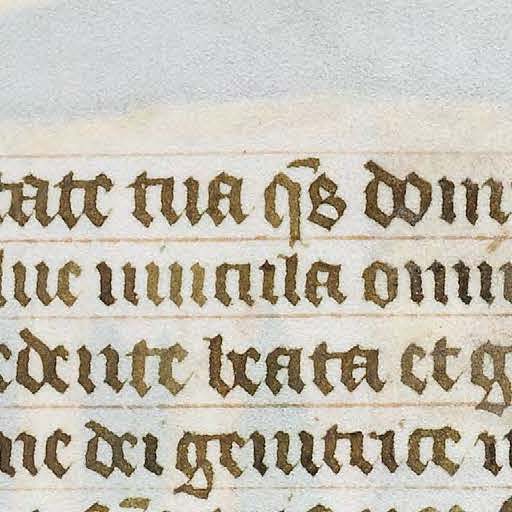 tate tua qs̄ domi
lue uincula omni
cedente beata et g
ne dei genitrice